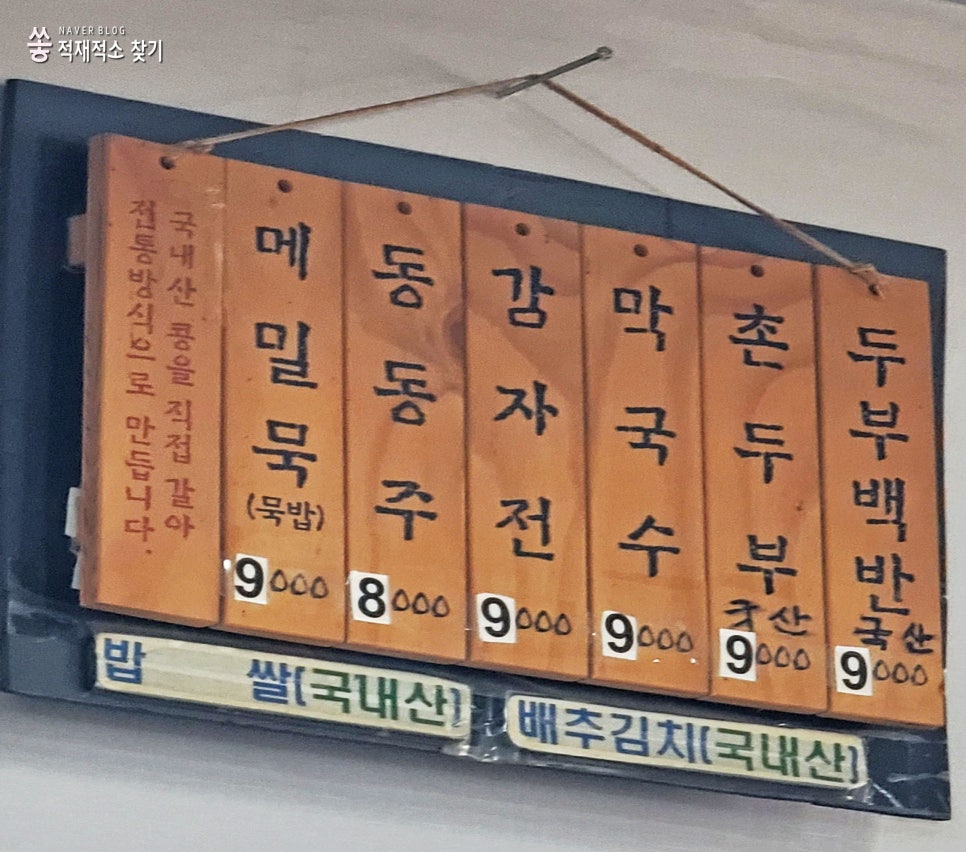 쏭 NAVER BLOG
적재적소 찾기
국내산 콩을 직접 갈아
전통방식으로 만듭니다.
메밀묵
(묵밥)
9000
동동주
8000
감자전
9000
막국수
9000
촌두부
국산
9000
두부백반
국산
9000
밥 쌀(국내산)
배추김치(국내산)